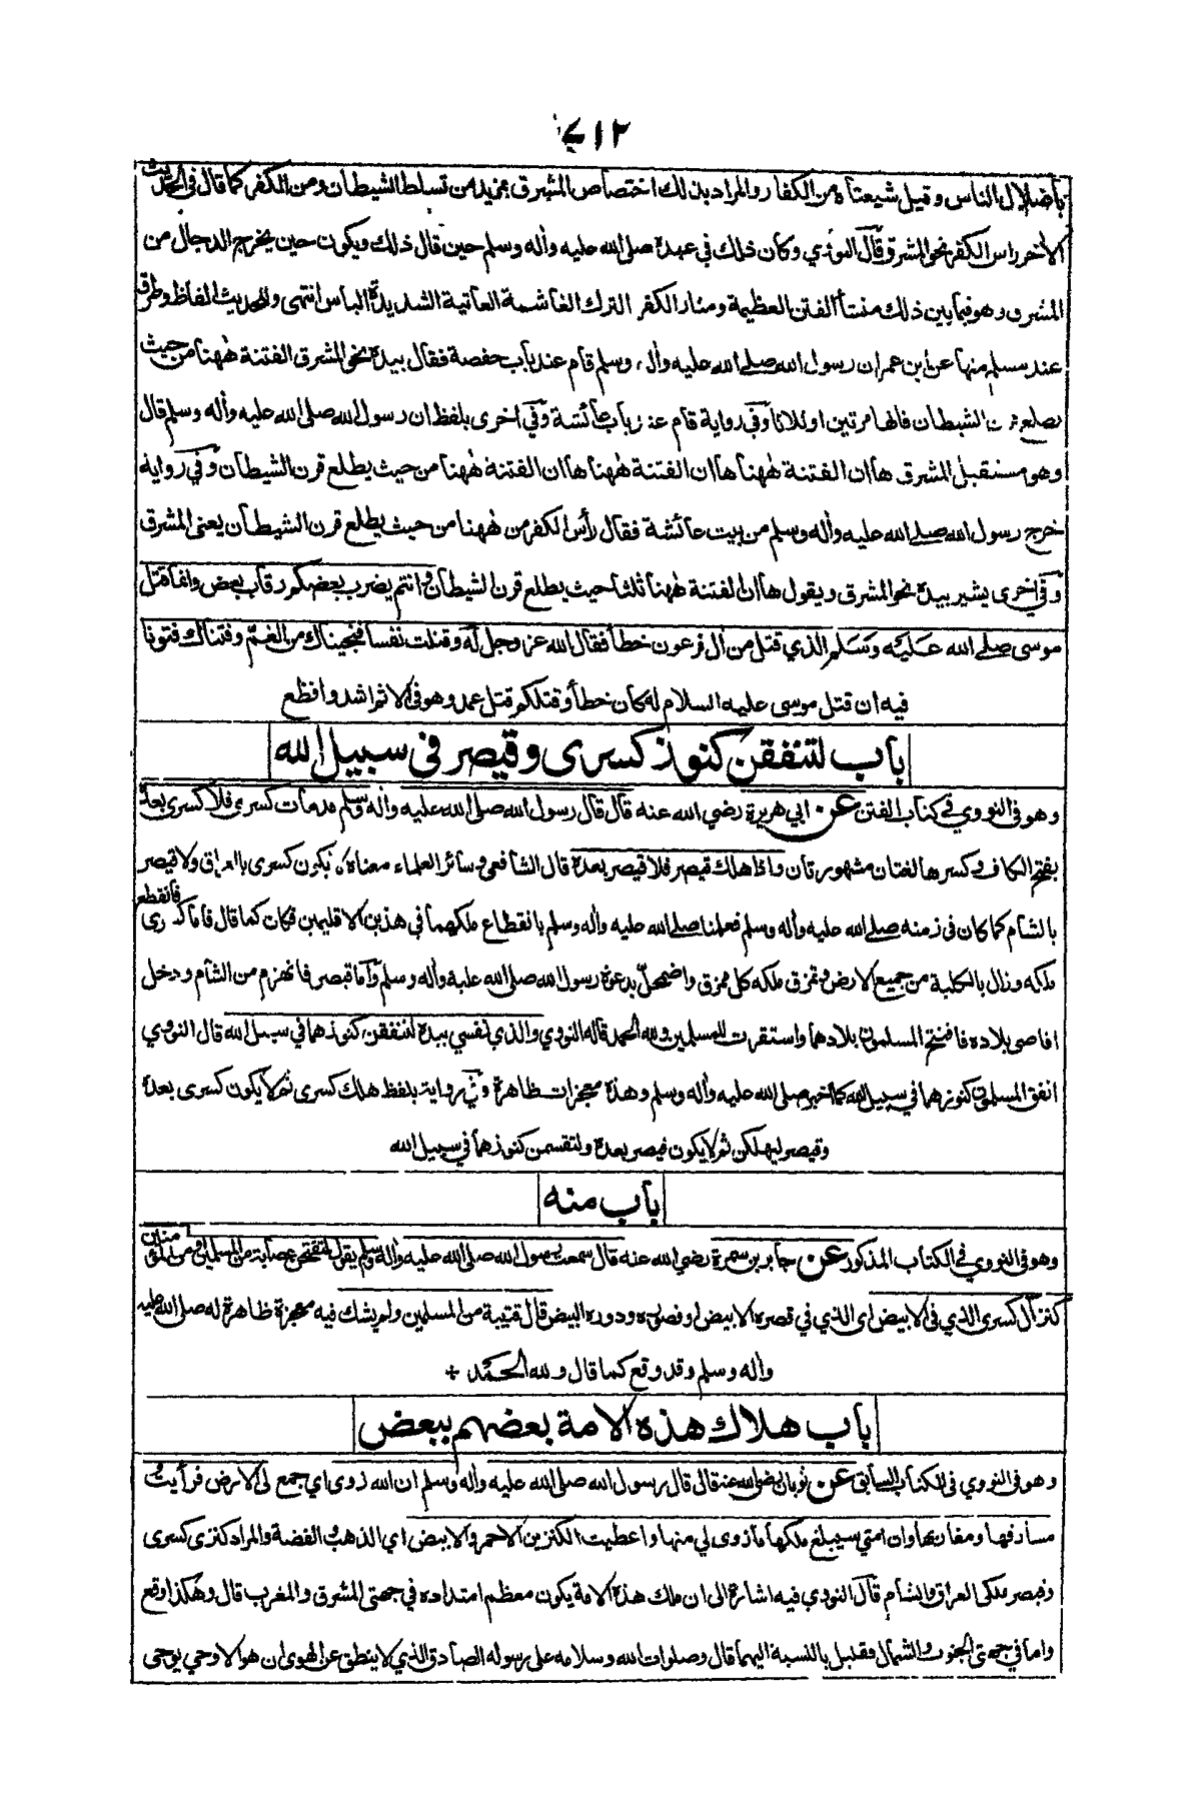 ٧١٢
بأضلال الناس وقيل شيعتاه من الكفار والمراد بذلك اختصاص المشرق بمزيد من تسلط الشيطان ومن الكفر كما قال في الحديث
الأخر راس الكفر نحو المشرق قال النووي وكان ذلك في عهده صلى الله عليه وأله وسلم حين قال ذلك ويكون حين يخرج الدجال من
المشرق وهو فيما بين ذلك منشأ الفتن العظيمة ومنار الكفر الترك الغاشمة العاتية الشديدة الباس انتهى ولهذا الحديث الفاظ وطرق
عند مسلم منها عن ابن عمر ان رسول الله صلے الله عليه وأله وسلم قام عند باب حفصة فقال بيده نحو المشرق الفتنة ههنا من حيث
يطلع قرن الشيطان قالها مرتين او ثلاثا وفي رواية قام عند باب عائشة وفي اخرى بلفظ ان رسول الله صلى الله عليه وأله وسلم قال
وهو مستقبل المشرق ها ان الفتنة ههنا ها ان الفتنة ههنا ها ان الفتنة ههنا من حيث يطلع قرن الشيطان وفي رواية
خرج رسول الله صلے الله عليه وأله وسلم من بيت عائشة فقال رأس الكفر من ههنا من حيث يطلع قرن الشيطان يعني المشرق
وفي اخرى يشير بيده نحو المشرق ويقول ها ان الفتنة ههنا ثلثا حيث يطلع قرن الشيطان وانتم يضرب بعضكم رقاب بعض وانما قتل
موسى صلے الله عليه وسلم الذي قتل من أل فرعون خطأ فقال الله عز وجل له وقتلت نفسا فنجيناك من الغم وفتناك فتونا
فيه ان قتل موسى عليه السلام له كان خطأ وقتلكم قتل عمد وهو في الاثم اشد وافظع
باب لتنفقن كنوز كسرى وقيصر في سبيل الله
وهو في النووي في كتاب الفتن عن ابي هريرة رضي الله عنه قال قال رسول الله صلى الله عليه وأله وسلم قد مات كسرى فلا كسرى بعده
بفتح الكاف وكسرها لغتان مشهورتان واذا هلك قيصر فلا قيصر بعده قال الشافعي وسائر العلماء معناه لا يكون كسرى بالعراق ولا قيصر
بالشام كما كان في زمنه صلے الله عليه وأله وسلم فعلمنا صلے الله عليه وأله وسلم بانقطاع ملكهما في هذين الاقليمين فكان كما قال فاما كسرى فانقطع
ملكه وزال بالكلية من جميع الارض وتمزق ملكه كل ممزق واضمحل بدعوة رسول الله صلى الله عليه وأله وسلم واما قيصر فانهزم من الشام ودخل
اقاصي بلاده فافتتح المسلمون بلادهما واستقرت للمسلمين ولله الحمد قاله النووي والذي نفسي بيده لتنفقن كنوزهما في سبيل الله قال النووي
انفق المسلمون كنوزهما في سبيل الله كما اخبر صلى الله عليه وأله وسلم وهذه معجزات ظاهرة وفي رواية بلفظ هلك كسرى ثم لا يكون كسرى بعده
وقيصر ليهلكن ثم لا يكون قيصر بعده ولتقسمن كنوزهما في سبيل الله
باب منه
وهو في النووي في الكتاب المذكور عن جابر بن سمرة رضي الله عنه قال سمعت رسول الله صلى الله عليه وأله وسلم يقول لتفتحن عصابة من المسلمين او من المؤمنين
كنز أل كسرى الذي في الابيض اي الذي في قصره الابيض او قصوره ودوره البيض قال قتيبة من المسلمين ولم يشك فيه معجزة ظاهرة له صلى الله عليه
وأله وسلم وقد وقع كما قال ولله الحمد +
باب هلاك هذه الامة بعضهم ببعض
وهو في النووي في الكتاب السابق عن ثوبان رضي الله عنه قال قال رسول الله صلى الله عليه وأله وسلم ان الله زوى اي جمع لي الارض فرأيت
مشارقها ومغاربها وان امتي سيبلغ ملكها ما زوى لي منها واعطيت الكنزين الاحمر والابيض اي الذهب والفضة والمراد كنزي كسرى
وقيصر ملكي العراق والشام قال النووي فيه اشارة الى ان ملك هذه الامة يكون معظم امتداده في جهتي المشرق والمغرب قال وهكذا وقع
واما في جهتي الجنوب والشمال فقليل بالنسبة اليهما قال وصلوات الله وسلامه على رسوله الصادق الذي لا ينطق عن الهوى ان هو الا وحي يوحى